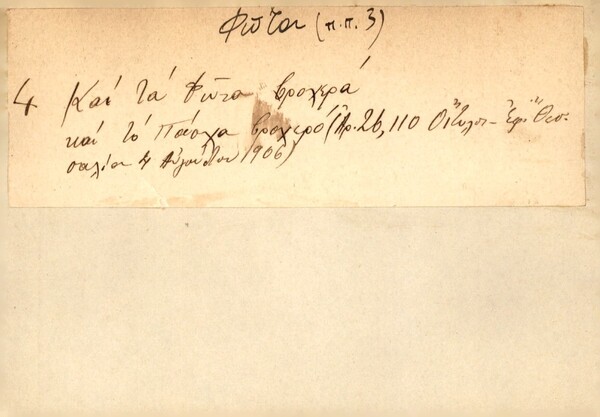 Φῶτα (π.π. 3)
4 Καί τά Φῶτα βροχερά
καί τό Πάσχα βροχερό (Ἀρ. 26, 110 Οἴτυλος - Ἐφ. Θεσ-
σαλία 4 Αὐγούστου 1906)